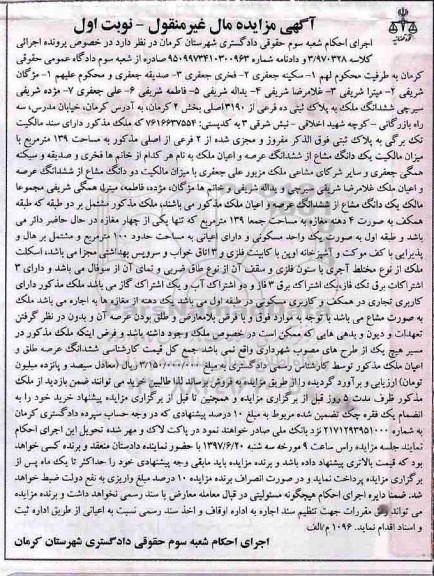 آگهی مزایده مال غیرمنقول - نوبت اول
اجرای احکام شعبه سوم حقوقی دادگستری شهرستان کرمان در نظر دارد در خصوص پرونده اجرائی
کلاسه ۳/۹۷۰۳۲۸ و دادنامه شماره ۹۵۰۹۹۷۳۴۱۰۳۰۰۹۶۳ صادره از شعبه سوم دادگاه عمومی حقوقی
کرمان به طرفیت محکوم لهم ۱- سکینه جعفری ۲- فخری جعفری ۳- صدیقه جعفری و محکوم علیهم ۱- مژگان
شریفی ۲- میترا شریفی ۳- غلامرضا شریفی ۴- یداله شریفی ۵- فاطمه شریفی ۶- علی جعفری ۷- مژده شریفی
سیرچی ششدانگ ملک به پلاک ثبتی ده فرعی از ۳۱۹۰ اصلی بخش ۲ کرمان، به آدرس کرمان، خیابان مدرس، سه
راه بازرگانی - کوچه شهید اخلاقی - نبش شرقی ۳ به کدپستی: ۷۶۱۶۶۳۷۵۵۴ که ملک مذکور دارای سند مالکیت
تک برگی به پلاک ثبتی فوق الذکر مفروز و مجزی شده از ۲ فرعی از اصلی مذکور به مساحت ۱۳۹ مترمربع با
میزان مالکیت یک دانگ مشاع از ششدانگ عرصه و اعیان ملک به نام هر کدام از خانم ها فخری و صدیقه و سکینه
همگی جعفری و سایر شرکای مشاعی ملک مزبور علی جعفری با میزان مالکیت دو دانگ مشاع از ششدانگ عرصه
و اعیان ملک غلامرضا شریفی سیرچی و یداله شریفی و خانم ها مژگان، مژده، فاطمه، میترا، همگی شریفی مجموعا
مالک یک دانگ مشاع از ششدانگ عرصه و اعیان ملک مذکور می باشند، ملک مذکور مشتمل بر دو طبقه که طبقه
همکف به صورت ۴ دهنه مغازه به مساحت جمعا ۱۳۹ مترمربع که تنها یکی از چهار مغازه در حال حاضر دائر می
باشد و طبقه اول به صورت یک واحد مسکونی و دارای اعیانی به مساحت حدود ۱۰۰ مترمربع و مشتمل بر هال و
پذیرایی با کف موکت و آشپزخانه اوپن با کابینت فلزی و ۳ اتاق خواب و سرویس بهداشتی مجزا می باشد، اسکلت
ملک از نوع مختلط آجری با ستون فلزی و سقف آن از نوع طاق ضربی و نمای آن از سوفال می باشد و دارای ۳
اشتراکات برق تک فاز، یک اشتراک برق ۳ فاز و دو اشتراک آب و یک اشتراک گاز می باشد ملک مذکور دارای
کاربری تجاری در همکف و کاربری مسکونی در طبقه اول می باشد یک دهنه از مغازه ها به اجاره می باشد ملک
به صورت مشاع می باشد با توجه به موارد فوق و با فرض بلامعارض و طلق بودن عرصه آن و بدون در نظر گرفتن
تعهدات و دیون و بدهی هایی که ممکن است در خصوص ملک وجود داشته باشد و فرض اینکه ملک مذکور در
مسیر هیچ یک از طرح های مصوب شهرداری واقع نمی باشد جمع کل قیمت کارشناسی ششدانگ عرصه طلق و
اعیان ملک مذکور توسط کارشناس رسمی دادگستری به مبلغ ۳/۱۵۰/۰۰۰/۰۰۰ ریال (معادل سیصد و پانزده میلیون
تومان) ارزیابی و برآورد گردیده را از طریق مزایده به فروش برساند لذا طالبین خرید می توانند ضمن بازدید از ملک
مذکور ظرف مدت ۵ روز قبل از برگزاری مزایده و همچنین تا قبل از برگزاری مزایده پیشنهاد خرید خود را به
انضمام یک فقره چک تضمین شده مربوط به مبلغ ۱۰ درصد پیشنهادی که در وجه حساب سپرده دادگستری کرمان
به شماره ۲۱۷۱۲۹۳۹۵۱۰۰۰ نزد بانک ملی صادر خواهند نمود در پاکت لاک و مهر شده تحویل این اجرای احکام
نمایند جلسه مزایده راس ساعت ۹ مورخه سه شنبه ۱۳۹۷/۶/۲۰ با حضور نماینده دادستان منعقد و برنده کسی خواهد
بود که قیمت بالاتری پیشنهاد داده باشد و برنده مزایده باید مابقی وجه پیشنهادی خود را حداکثر تا یک ماه پس از
برگزاری مزایده پرداخت نماید و در صورت انصراف برنده مزایده ۱۰ درصد مبلغ واریزی به نفع دولت ضبط خواهد
شد. ضمنا دایره اجرای احکام هیچگونه مسئولیتی در قبال معامله معارض یا سند رسمی نخواهد داشت و برنده مزایده
می تواند وفق مقررات جهت تنظیم سند اجاره به اداره اوقاف و اخذ سند رسمی نسبت به اعیانی از طریق اداره ثبت
و اسناد اقدام نماید. ۱۰۹۶ م/الف
اجرای احکام شعبه سوم حقوقی دادگستری شهرستان کرمان